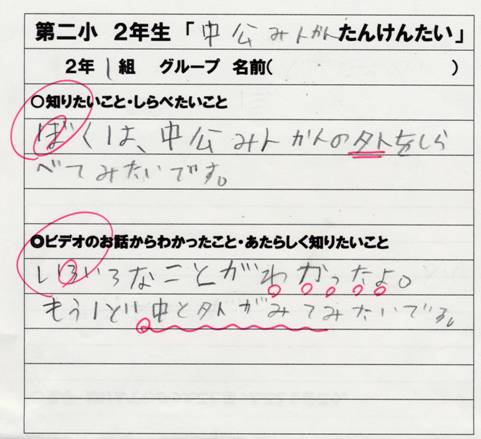 第二小 2年生「中公みんかんたんけんたい」
2年 1組 グループ 名前( )
○知りたいこと・しらべたいこと
ぼくは、中公みんかんの外をしら
べてみたいです。
◎ビデオのお話からわかったこと・あたらしく知りたいこと
いろいろなことがわかったよ。
もう1ど中と外がみてみたいです。